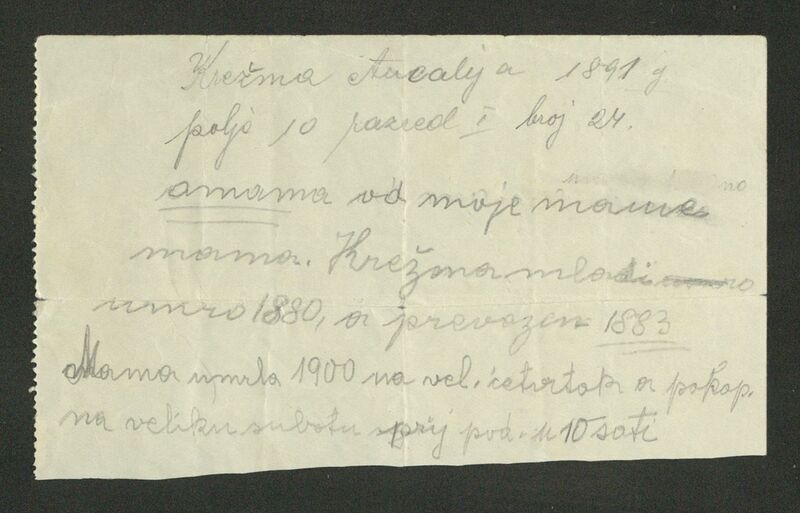 Krežma Aucalija 1891 g
polje 10 razred I broj 24.
amama od moje mame
mama. Krežma mladi
umro 1880, a prevozen 1883
Mama umrla 1900 na vel. četvrtak a pokop.
na veliku subotu prij pod. u 10 sati